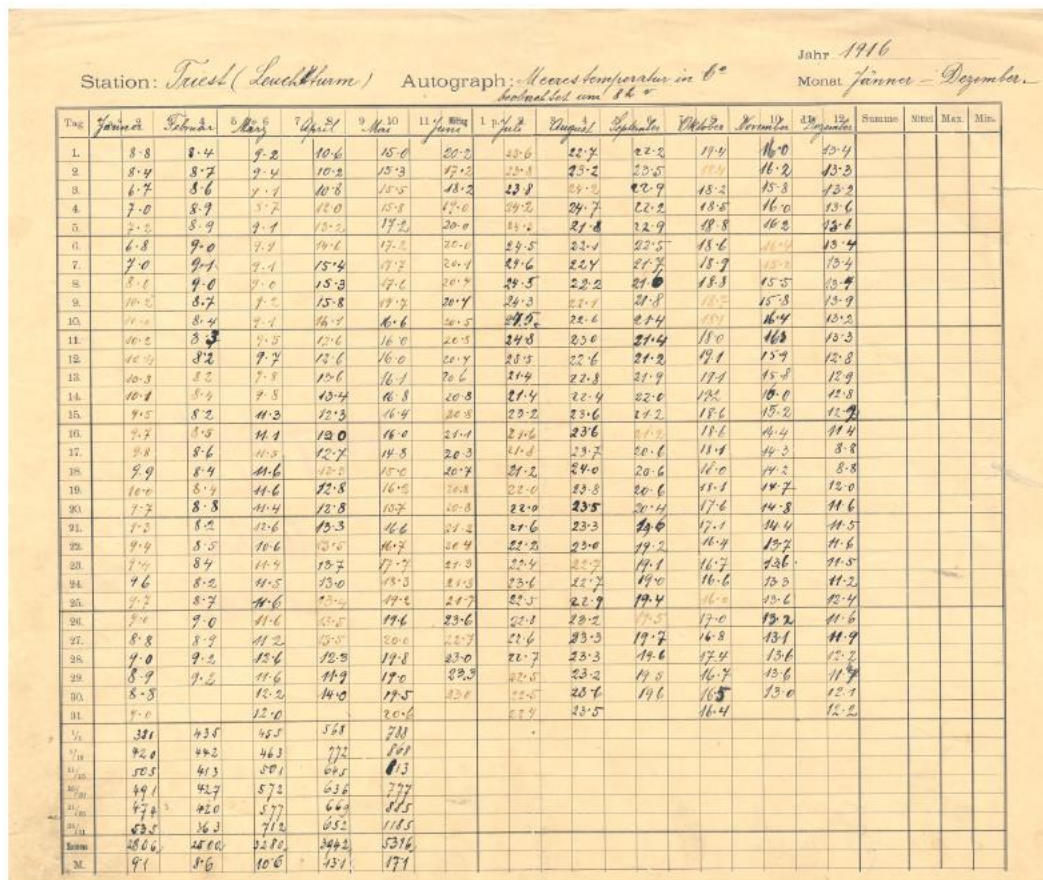 Jahr 1916
Station: Triest (Leuchtturm) Autograph: Meerestemperatur in C°
Monat Jänner – Dezember.
beobachtet um 8h v
Tag Jänner Februar März April Mai Juni Juli August September Oktober November Dezember Summe Mittel Max. Min.
1. 8·8 8·4 9·2 10·6 15·0 20·2 22·7 22·2 19·4 16·0 13·4
2. 8·4 8·7 9·4 10·2 15·3 17·2 23·2 23·5 16·2 13·3
3. 6·7 8·6 10·8 15·5 18·2 23·8 24·2 22·9 18·2 15·8 13·2
4. 7·0 8·9 12·0 15·8 19·0 24·2 24·7 22·2 18·5 16·0 13·6
5. 7·2 8·9 9·1 13·2 17·2 20·0 21·8 22·9 18·8 16·2 13·6
6. 6·8 9·0 9·1 14·6 17·2 20·0 24·5 22·1 22·5 18·6 16·4 13·4
7. 7·0 9·1 9·1 15·4 17·7 20·1 24·6 22·4 21·7 18·9 13·4
8. 9·0 9·0 15·3 17·6 20·4 24·5 22·2 21·6 18·8 15·5 13·4
9. 10·2 8·7 9·2 15·8 20·4 24·3 21·8 15·8 13·9
10. 8·4 9·1 16·1 16·6 20·5 22·6 21·4 16·4 13·2
11. 10·2 8·3 9·5 12·6 16·0 20·5 24·8 23·0 21·4 18·0 163 13·3
12. 8·2 9·7 12·6 16·0 20·4 23·5 22·6 21·2 19·1 15·9 12·8
13. 10·3 8·2 9·8 13·6 16·1 20·6 21·4 22·8 21·9 19·1 15·8 12·9
14. 10·1 8·4 9·8 13·4 16·8 20·8 21·4 22·4 22·0 19·2 15·0 12·8
15. 9·5 8·2 11·3 12·3 16·4 20·8 23·2 23·6 21·2 18·6 15·2 12·9
16. 9·7 8·5 11·1 12·0 16·0 21·1 21·6 23·6 21·2 18·6 14·4 11·4
17. 9·8 8·6 11·5 12·7 14·8 20·3 21·8 23·7 20·6 18·1 14·3 8·8
18. 9·9 8·4 11·6 15·0 20·7 21·2 24·0 20·6 18·0 14·2 8·8
19. 10·0 8·4 11·6 12·8 16·2 20·8 22·0 23·8 20·6 18·1 14·7 12·0
20. 9·7 8·8 11·4 12·8 15·7 20·8 22·0 23·5 20·4 17·6 14·8 11·6
21. 9·3 8·2 12·6 13·3 16·6 21·2 21·6 23·3 17·1 14·4 11·5
22. 9·4 8·5 10·6 13·5 16·7 20·4 22·2 23·0 19·2 16·4 13·7 11·6
23. 9·4 8·4 11·4 13·7 17·7 21·3 22·4 22·7 19·1 16·7 13·6 11·5
24. 9·6 8·2 11·5 13·0 18·3 21·8 23·6 22·7 19·0 16·6 13·3 11·2
25. 9·7 8·7 11·6 13·4 19·2 21·7 22·5 22·9 19·4 16·0 13·6 12·4
26. 9·0 9·0 11·6 13·5 19·6 23·6 22·8 23·2 19·5 17·0 13·2 11·6
27. 8·8 8·9 11·2 13·5 20·0 22·7 22·6 23·3 19·7 16·8 13·1 11·9
28. 9·0 9·2 12·6 12·3 19·8 23·0 22·7 23·3 19·6 17·4 13·6 12·2
29. 8·9 9·2 11·6 11·9 19·0 23·3 22·5 23·2 19·5 16·7 13·6 11·7
30. 8·8 12·2 14·0 19·5 23·0 22·5 23·6 19·6 16·5 13·0 12·1
31. 9·0 12·0 20·6 22·4 23·5 16·4 12·2
381 435 455 568 788
420 442 463 772 868
505 413 501 645 813
491 427 572 636 777
474 420 577 669 885
535 363 712 652 1185
Summe 2806 2500 3280 3942 5316
M. 9·1 8·6 10·6 13·1 17·1